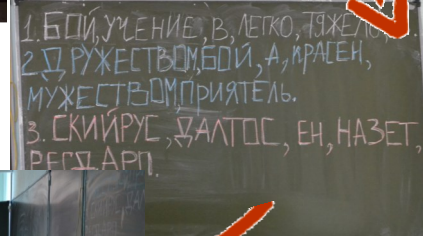 1. БОЙ, УЧЕНИЕ, В, ЛЕГКО, ТЯЖЕЛО,
2. ДРУЖЕСТВОМ, БОЙ, А, КРАСЕН,
МУЖЕСТВОМ, ПРИЯТЕЛЬ.
3. СКИЙРУС, ДАЛТОС, ЕН, НАЗЕТ,
РЕГДАРП.